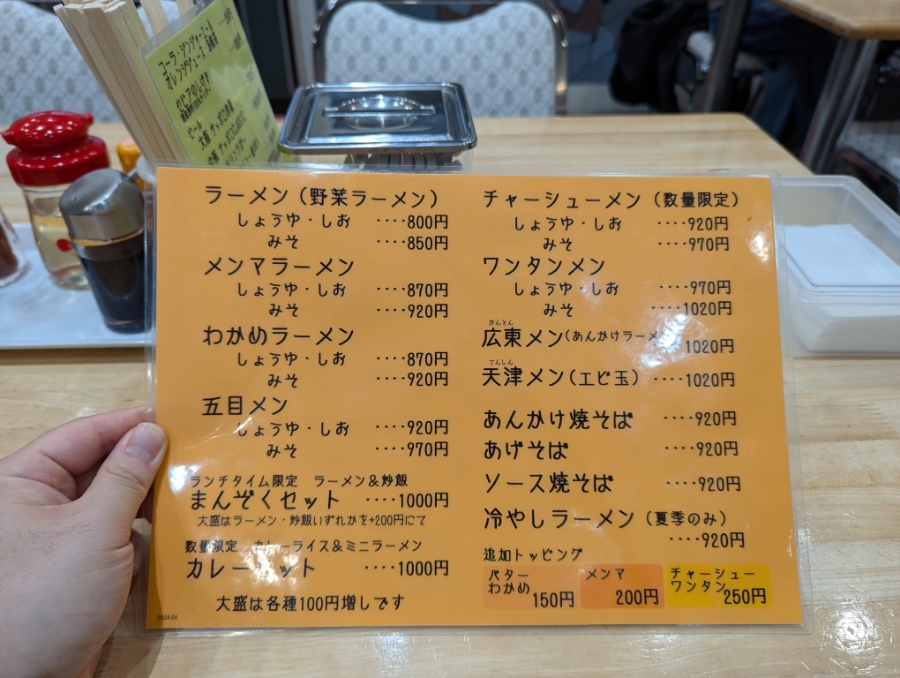 コーラ・ジンジャーエール
オレンジジュース
ビール
ラーメン（野菜ラーメン）
しょうゆ・しお ‥‥800円
みそ ‥‥850円
メンマラーメン
しょうゆ・しお ‥‥870円
みそ ‥‥920円
わかめラーメン
しょうゆ・しお ‥‥870円
みそ ‥‥920円
五目メン
しょうゆ・しお ‥‥920円
みそ ‥‥970円
ランチタイム限定 ラーメン＆炒飯
まんぞくセット ‥‥1000円
大盛はラーメン・炒飯いずれかを+200円にて
数量限定 カレーライス＆ミニラーメン
カレーセット ‥‥1000円
大盛は各種100円増しです
2024.04
チャーシューメン（数量限定）
しょうゆ・しお ‥‥920円
みそ ‥‥970円
ワンタンメン
しょうゆ・しお ‥‥970円
みそ ‥‥1020円
かんとん
広東メン（あんかけラーメン ‥1020円
てんしん
天津メン（エビ玉）‥‥1020円
あんかけ焼そば ‥‥920円
あげそば ‥‥920円
ソース焼そば ‥‥920円
冷やしラーメン（夏季のみ）
‥‥920円
追加トッピング
バター
わかめ 150円
メンマ
200円
チャーシュー
ワンタン 250円